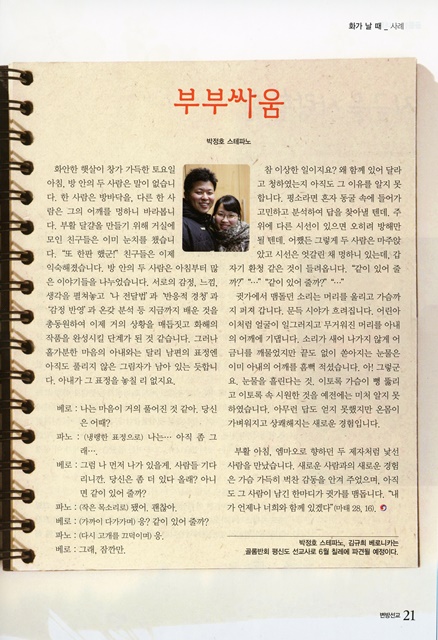 화가 날 때 _ 사례
부부싸움
박정호 스테파노
화안한 햇살이 창가 가득한 토요일
아침, 방 안의 두 사람은 말이 없습니
다. 한 사람은 방바닥을, 다른 한 사
람은 그의 어깨를 멍하니 바라봅니
다. 부활 달걀을 만들기 위해 거실에
모인 친구들은 이미 눈치를 챘습니
다. “또 한판 했군!” 친구들은 이제
익숙해졌습니다. 방 안의 두 사람은 아침부터 많
은 이야기들을 나누었습니다. 서로의 감정, 느낌,
생각을 펼쳐놓고 ‘나 전달법’과 ‘반응적 경청’과
‘감정 반영’과 온갖 분석 등 지금까지 배운 것을
총동원하여 이제 거의 상황을 매듭짓고 화해의
작품을 완성시킬 단계가 된 것 같습니다. 그러나
홀가분한 마음의 아내와는 달리 남편의 표정엔
아직도 풀리지 않은 그림자가 남아 있는 듯합니
다. 아내가 그 표정을 놓칠 리 없지요.
베로 : 나는 마음이 거의 풀어진 것 같아. 당신
은 어때?
파노 : (냉랭한 표정으로) 나는… 아직 좀 그
래….
베로 : 그럼 나 먼저 나가 있을게, 사람들 기다
리니깐. 당신은 좀 더 있다 올래? 아니
면 같이 있어 줄까?
파노 : (작은 목소리로) 됐어, 괜찮아.
베로 : (가까이 다가가며) 응? 같이 있어 줄까?
파노 : (다시 고개를 끄덕이며) 응.
베로 : 그래, 잠깐만.
참 이상한 일이지요? 왜 함께 있어 달라
고 청하였는지 아직도 그 이유를 알지 못
합니다. 평소라면 혼자 동굴 속에 들어가
고민하고 분석하여 답을 찾아낼 텐데, 주
위에 다른 시선이 있으면 오히려 방해만
될 텐데, 어쨌든 그렇게 두 사람은 마주앉
았고 시선은 엇갈린 채 멍하니 있는데, 갑
자기 환청 같은 것이 들려옵니다. “같이 있어 줄
까?” “…” “같이 있어 줄까?” “…”
귓가에서 맴돌던 소리는 머리를 울리고 가슴까
지 퍼져 갑니다. 문득 시야가 흐려집니다. 어린아
이처럼 얼굴이 일그러지고 무거워진 머리를 아내
의 어깨에 기댑니다. 소리가 새어 나가지 않게 어
금니를 깨물었지만 끝도 없이 쏟아지는 눈물은
이미 아내의 어깨를 흠뻑 적셨습니다. 아! 그렇군
요, 눈물을 흘린다는 것, 이토록 가슴이 뻥 뚫리
고 이토록 속 시원한 것을 예전에는 미처 알지 못
하였습니다. 아무런 답도 얻지 못했지만 온몸이
가벼워지고 상쾌해지는 새로운 경험입니다.
부활 아침, 엠마오로 향하던 두 제자처럼 낯선
사람을 만났습니다. 새로운 사람과의 새로운 경험
은 가슴 가득히 벅찬 감동을 안겨 주었으며, 아직
도 그 사람이 남긴 한마디가 귓가를 맴돕니다. “내
가 언제나 너희와 함께 있겠다”(마태 28, 16).
박정호 스테파노, 김규희 베로니카는
골롬반회 평신도 선교사로 6월 칠레에 파견될 예정이다.
변방선교 21